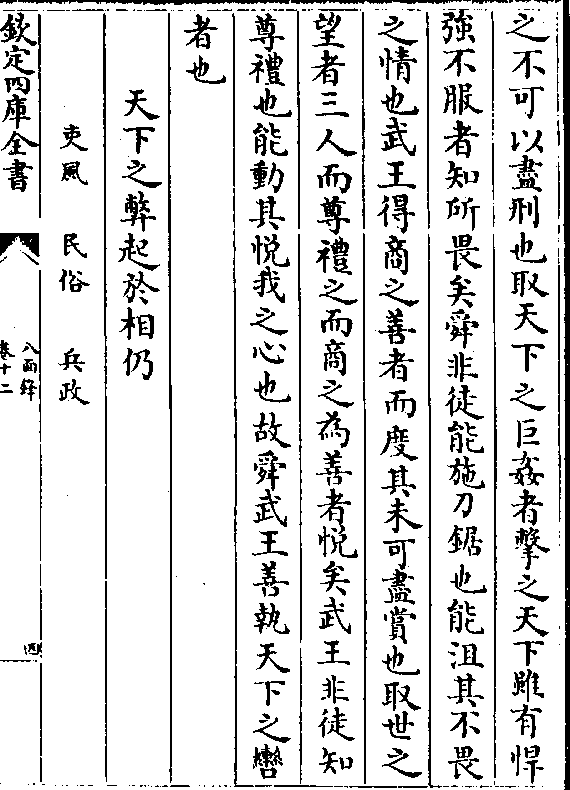 之不可以盡刑也取天下之巨姦者擊之天下雖有悍
強不服者知所畏矣舜非徒能施刀鋸也能沮其不畏
之情也武王得商之善者而度其未可盡賞也取世之
望者三人而尊禮之而商之為善者悦矣武王非徒知
尊禮也能動其悦我之心也故舜武王善執天下之轡
者也
天下之弊起於相仍
吏風 民俗 兵政
欽定四庫全書
八面鋒
卷十二
四